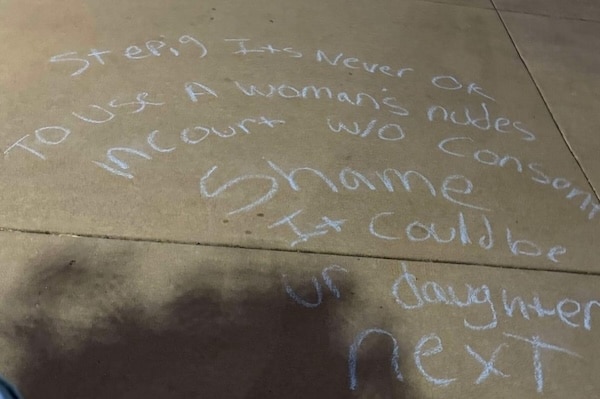 Step,9 Its Never OK
TO USE A woman's nudes
N COURT W/O Consent
Shame
It Could be
ur daughter
next